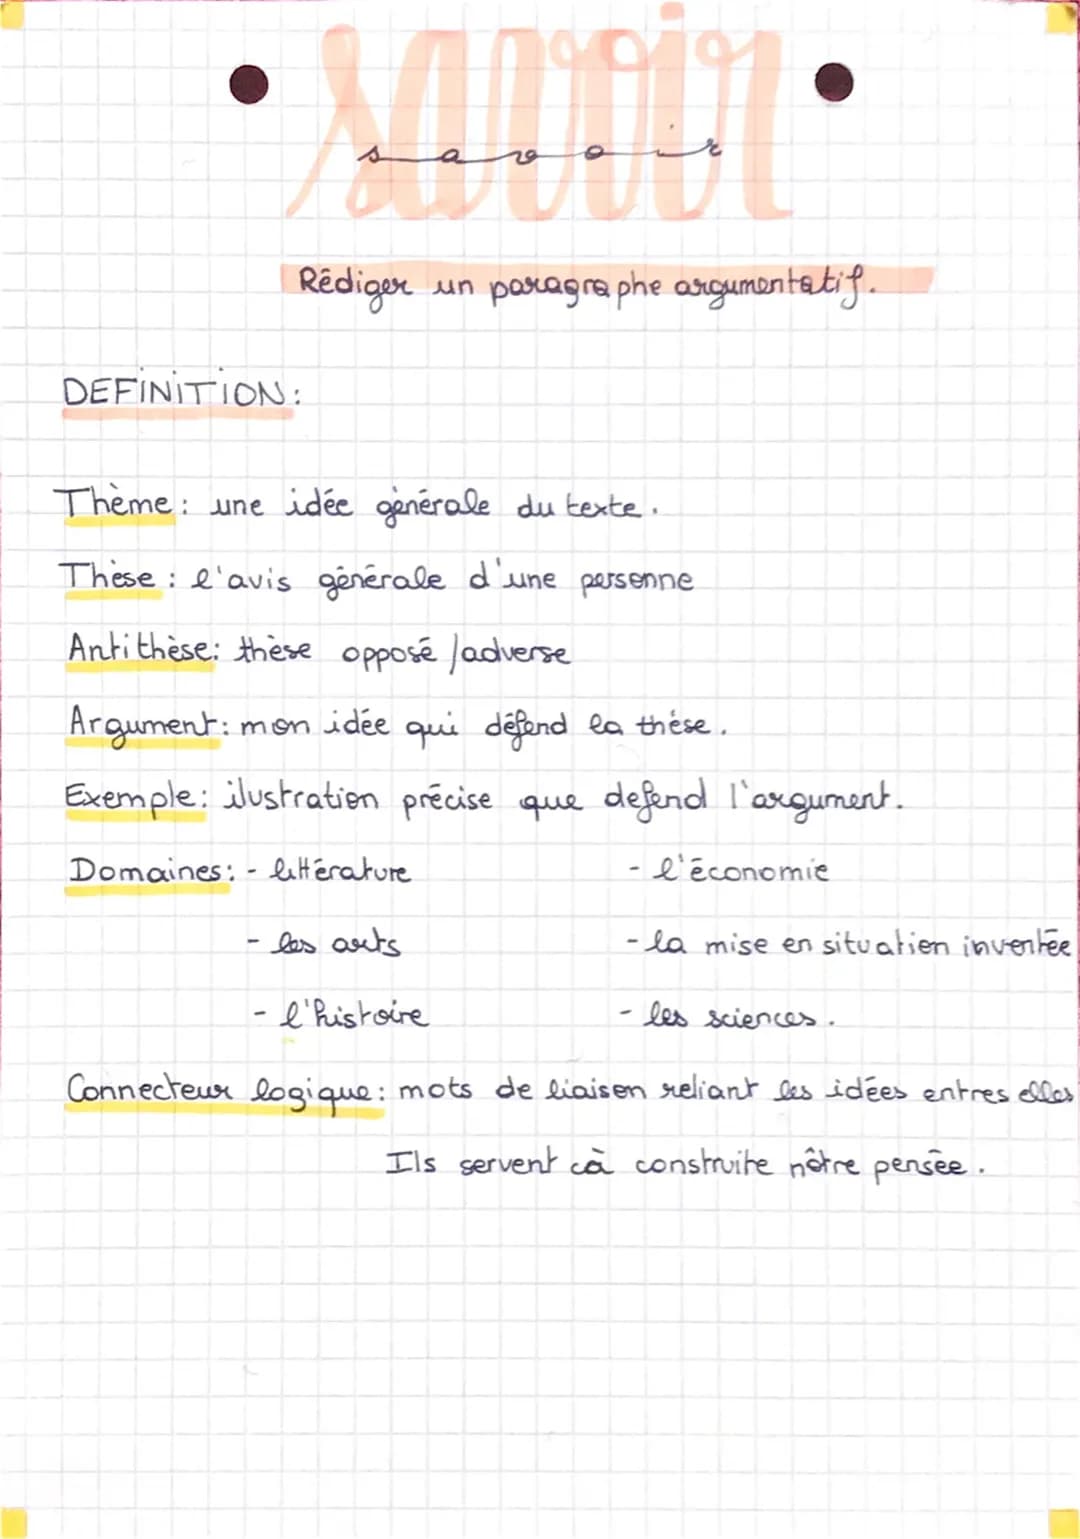 savoir
savoir
Rédiger un paragraphe argumentatif.
DEFINITION:
Thème: une idée générale du texte.
Thèse: l'avis générale d'une personne
Antithèse: thèse opposé/adverse
Argument: mon idée qui défend la thèse.
Exemple: ilustration précise que defend l'argument.
Domaines: - littérature - l'économie
- les arts - la mise en situation inventée
- l'histoire - les sciences.
Connecteur logique: mots de liaison reliant les idées entres elles
Ils servent à construite nôtre pensée.